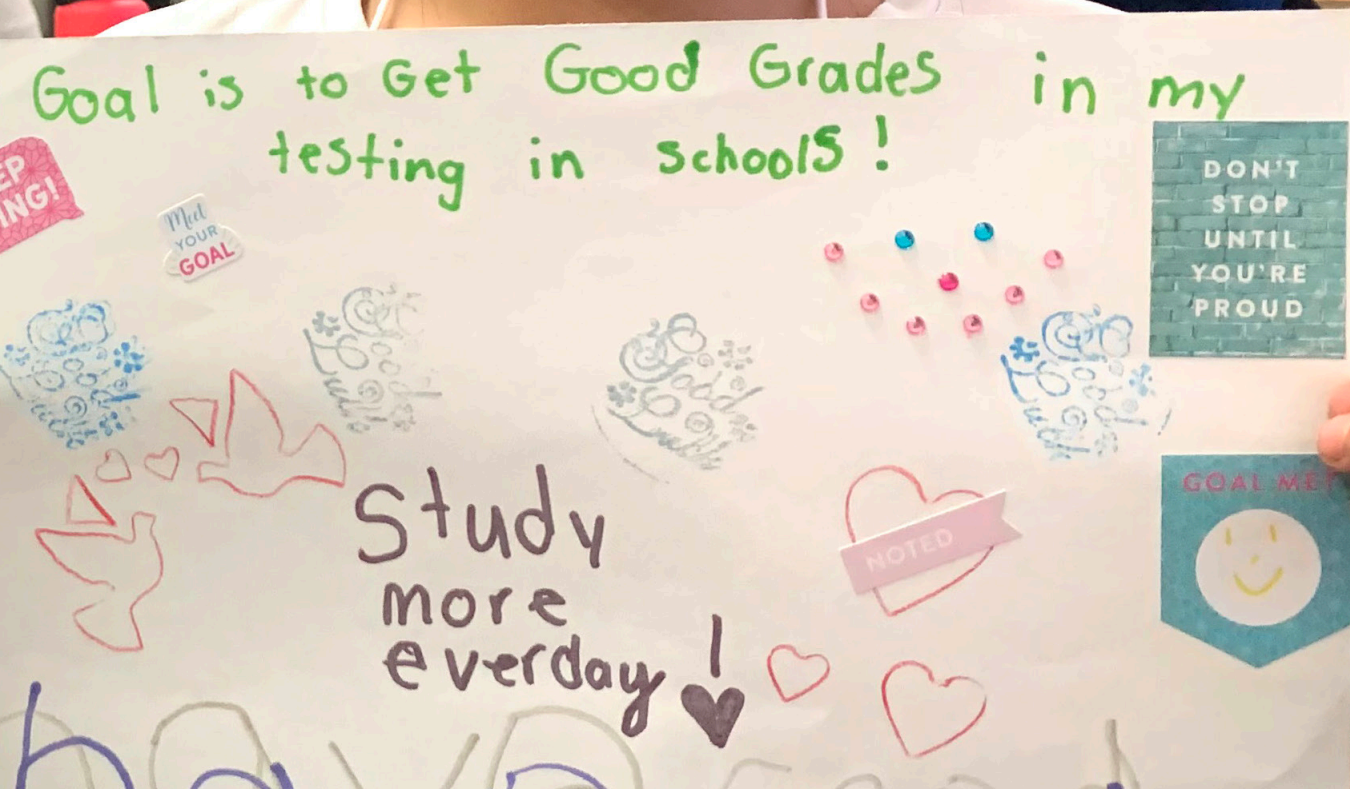 Goal is to Get Good Grades in my
testing in schools!
EP
ING!
Meet
YOUR
GOAL
DON'T
STOP
UNTIL
YOU'RE
PROUD
Good
Luck
Good
Luck
Good
Luck
Good
Luck
GOAL ME
NOTED
Study
more
everday!